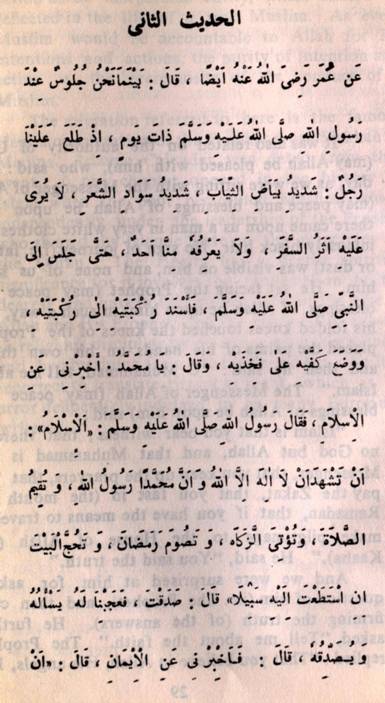 الحديث الثانى
عَن عُمَر رَضِىَ اللهُ عَنْهُ اَيْضًا ، قَالَ : بَيْنَمَانَحْنُ جُلُوسٌ عِنْدَ
رَسُولِ اللهِ صَلَّى اللهُ عَلَيهِ وَسَلَّمَ ذَاتَ يومٍ ، اذْ طَلَعَ عَلَيْنَا
رَجُلٌ : شَدِيدُ بَيَاضِ الثِّيَابِ ، شَدِيدُ سَوَادِ الشَّعَرِ ، لَا يُرَى
عَلَيْهِ اَثَرُ السَّفَرِ ، وَلَا يَعْرِفُهُ مِنَّا اَحَدٌ ، حَتَّى جَلَسَ اِلَى
النَّبِى صَلَّى اللهُ عَلَيْهِ وَسَلَّمَ ، فَاَسْنَدَ رُكْبَتَيْهِ الى رُكْبَتَيْهِ ،
وَوَضَعَ كَفَّيْهِ عَلَى فَخِذَيْهِ ، وَقَالَ : يَا مُحَمَّدُ : اَخْبِرْنى عَنِ
الْاِسْلَامِ ، فَقَالَ رَسُولُ اللهِ صَلَّى اللهُ عَلَيْهِ وَسَلَّمَ : «اَلْاِسْلَامُ» :
اَنْ تَشْهَدَانْ لَا الهَ الاَّ اللهُ وَ اَنَّ مُحَمَّدًا رَسُولُ اللهِ ، وَ تُقِيْمُ
الصَّلَاةَ ، وَتُؤْتِىَ الزَّكَاه ، وَ تَصُومَ رَمَضَانَ ، وَ تَحُجَّ الْبَيْتَ
انِ اسْتَطَعْتَ الَيْهِ سَبِيْلًا» قَالَ : صَدَقْتَ ، فَعَجِبْنَا لَهُ يَسْاَلُهُ
وَ يُصَدِّقُهُ ، قَالَ : فَاَخْبِرْنى عَنِ الْاِيْمَانِ ، قَالَ : «اَنْ